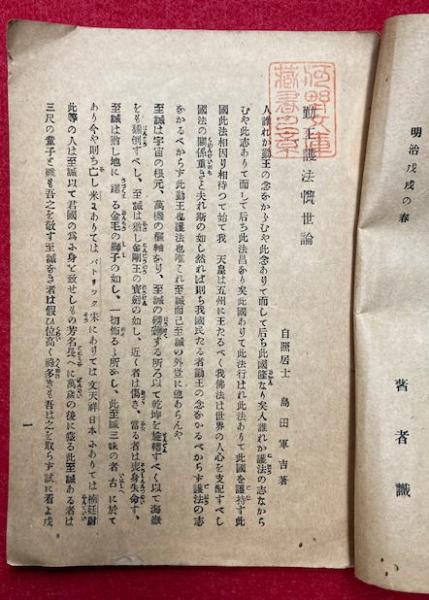 明治戊戌の春
著者識
勤王護法慨世論
自照居士 島田軍吉著
人誰れか勤王の念なからむや此念ありて而して后ち此國隆なり矣人誰れか護法の志なから
むや此志ありて而して后ち此法昌なり矣此國ありて此法行はれ此法ありて此國を護持す此
國此法相因り相待つて始て我 天皇は五州に王たるべく我佛法は世界の人心を支配すべし
國法の關係重き夫れ斯の如し然れば則ち我國民たる者勤王の念なかるべからず護法の志
なかるべからず此勤王也護法也唯これ至誠而已至誠の外豈に他あらんや
至誠は宇宙の根元、萬機の樞軸なり、至誠の發動する所ろ以て乾坤を旋轉すべく以て海嶽
をも傾倒すべし、至誠は猶し金剛王の寳劍の如し、近く者は傷き、當る者は喪身失命す、
至誠は猶し地に踞る金毛の獅子の如し、一切怖るゝ所なし、此至誠三昧の者 古に於て
あり今や則ち亡し米にありてはパトリック宋にありては文天祥日本にありては楠廷尉
此等の人は至誠以て君國の爲に身を致せしもの芳名長へに萬歳の後に薫る此至誠ある者は
三尺の童子と雖も吾之を敬す至誠なき者は假ひ位高く祿多きも吾は之を取らず試に看よ戊
一